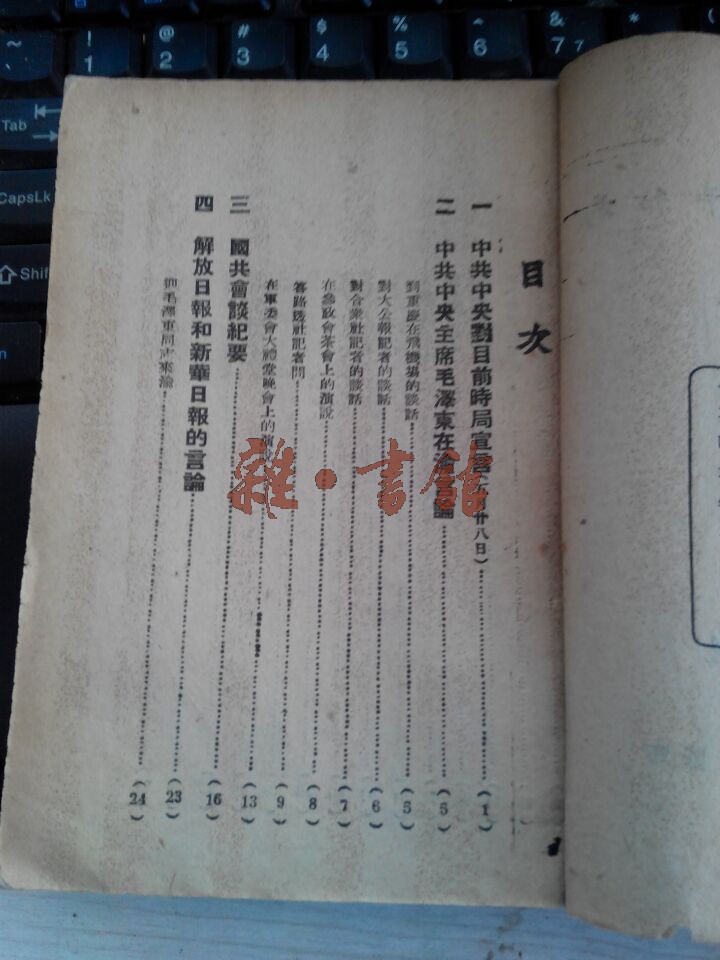 目次
一 中共中央對目前時局宣言(月廿八日) (1)
二 中共中央主席毛澤東在渝言論 (5)
到重慶在飛機場的談話 (5)
對大公報記者的談話 (6)
對合衆社記者的談話 (7)
在參政會茶會上的演說 (8)
答路透社記者問 (9)
在軍委會大禮堂晚會上的演說 (13)
三 國共會談紀要 (16)
四 解放日報和新華日報的言論 (23)
毛澤東同志來渝 (24)
雜·書館
~ ! @ # $ % ^ & *
` 1 2 3 4 5 6 7 7
Tab
CapsLk
Shif